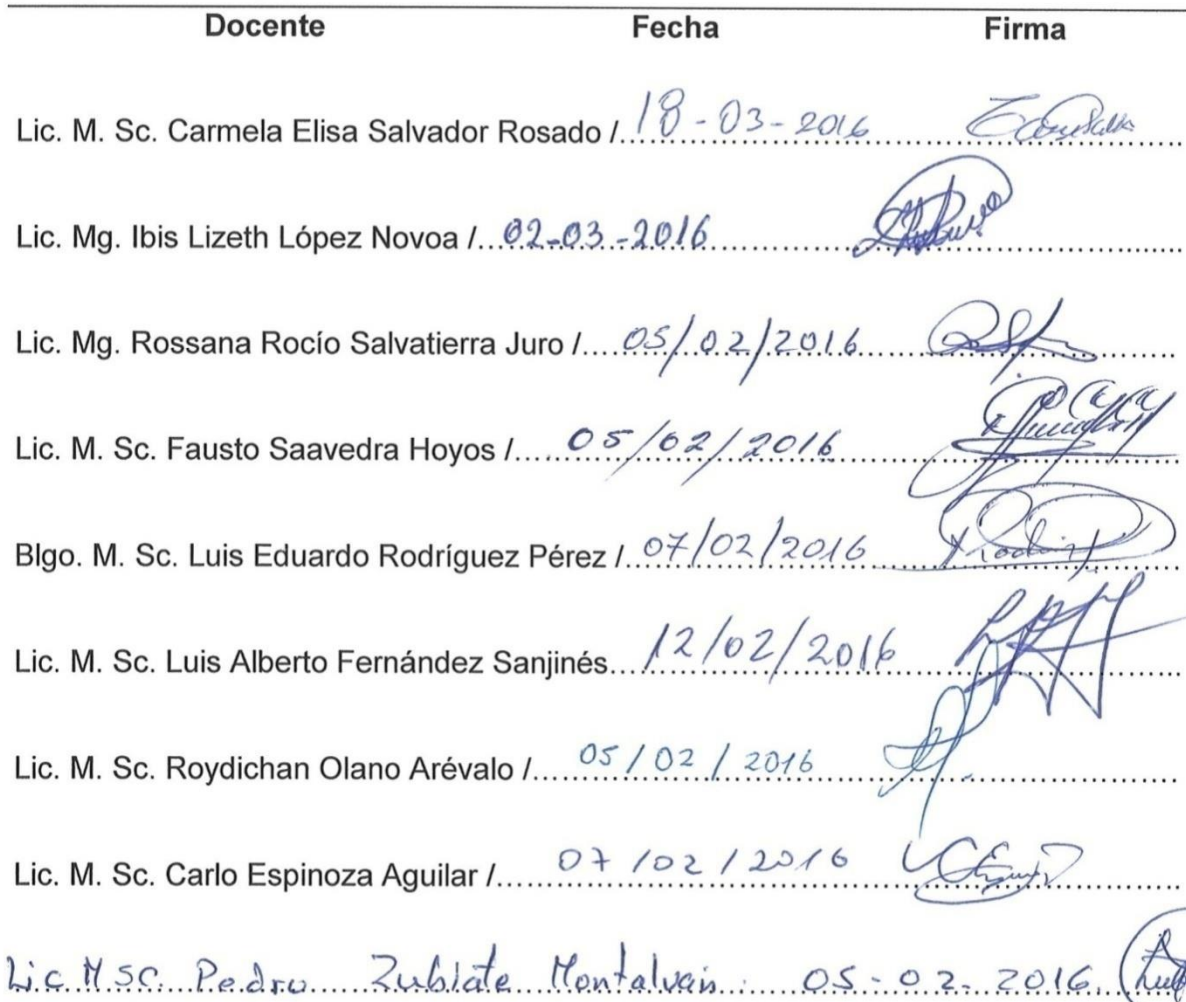 Docente Fecha Firma
Lic. M. Sc. Carmela Elisa Salvador Rosado /. 18-03-2016
Lic. Mg. Ibis Lizeth López Novoa /... 02-03-2016
Lic. Mg. Rossana Rocío Salvatierra Juro /.... 05/02/2016
Lic. M. Sc. Fausto Saavedra Hoyos /..... 05/02/2016
Blgo. M. Sc. Luis Eduardo Rodríguez Pérez /. 07/02/2016
Lic. M. Sc. Luis Alberto Fernández Sanjinés... 12/02/2016
Lic. M. Sc. Roydichan Olano Arévalo /.... 05/02/2016
Lic. M. Sc. Carlo Espinoza Aguilar /...... 07/02/2016
Lic. M.SC. Pedro Zubiate Montalván 05-02-2016